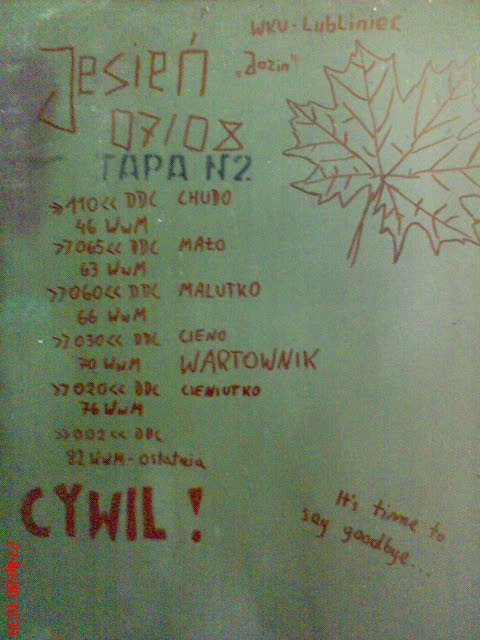 WKU-LubLiniec
Jesień
„Jozin"
07/08
TAPA N2
>>110<< DDC CHUDO
46 WwM
>>065<< DDC MAŁO
63 WwM
>>060<< DDC MALUTKO
66 WwM
>>030<< DDC CIENO
70 WwM WARTOWNIK
>>020<< DDC CIENIUTKO
76 WwM
>>002<< DDC
82 WwM-ostatnia
CYWIL!
It's time to
say goodbye...